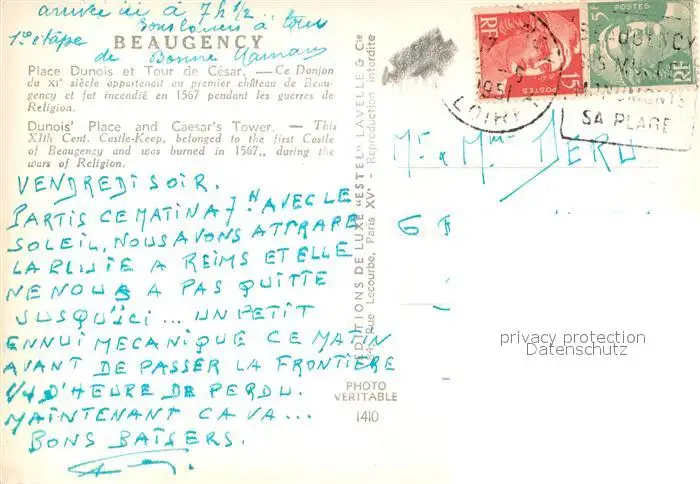 arrivée ici à 7h 1/2
Bons baisers à tous
1ère étape
de Bonne Maman
BEAUGENCY
Place Dunois et Tour de César. — Ce Donjon
du XIe siècle appartenait au premier château de Beau-
gency et fut incendié en 1567 pendant les guerres de
Religion.
Dunois' Place and Caesar's Tower. — This
XIth Cent. Castle-Keep, belonged to the first Castle
of Beaugency and was burned in 1567,, during the
wars of Religion.
VENDREDI SOIR.
PARTIS CE MATIN A 7H AVEC LE
SOLEIL, NOUS AVONS ATTRAPE
LA PLUIE A REIMS ET ELLE
NE NOUS A PAS QUITTE
JUSQU'ICI ... UN PETIT
ENNUI MECANIQUE CE MATIN
AVANT DE PASSER LA FRONTIERE
1/4 D'HEURE DE PERDU.
MAINTENANT CA VA...
BONS BAISERS.
EDITIONS DE LUXE "ESTEL" LAVELLE & Cie
Rue Lecourbe, Paris XV° - Reproduction interdite
PHOTO
VERITABLE
1410
RF
15F
POSTES
5F
RF
17
1951
LOIRET
BEAUGENCY
MONUMENTS
SA PLAGE
Mr & Mme DERU
6
privacy protection
Datenschutz